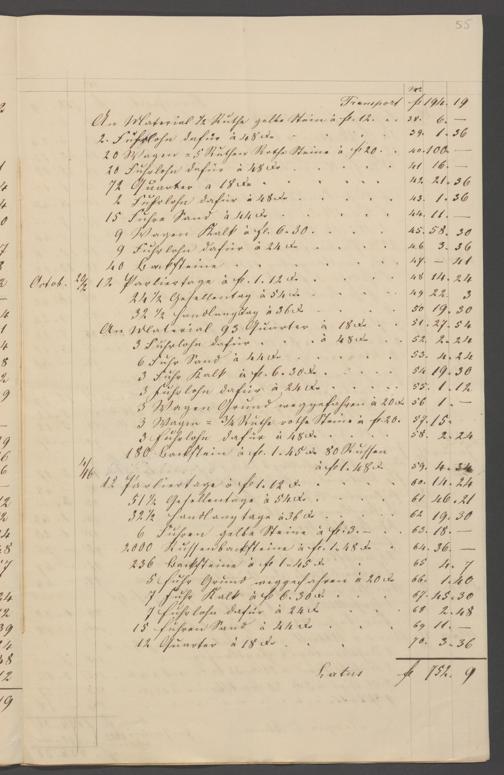 55
No
Transport f 194. 19
An Material ½ Ruthe gelbe Stein à fl. 12. 38. 6. —
2. Fuhrlohn dafür à 48 x 39. 1. 36
20 Wagen = 5 Ruthen Rothe Steine à f 20. 40. 100. —
20 Fuhrlohn dafür à 48 x 41 16. —
72 Quarter à 18 x 42. 21. 36
2 Fuhrlohn dafür à 48 x 43. 1. 36
15 Fuhre Sand à 44 x 44. 11. —
9 Wagen Kalk à fl. 6. 30. 45. 58. 30
9 Fuhrlohn dafür à 24 x 46 3. 36
40 Backsteine 47. — 41
Octob. 12 Parliertage à fl. 1. 12 x 48 14. 24
24½ Gesellentag à 54 x 49 22. 3
32½ Handlangtag à 36 x 50 19. 30
An Material 93 Quarter à 18 x 51. 27. 54
3 Fuhrlohn dafür à 48 x 52. 2. 24
6 Fuhr Sand à 44 x 53. 4. 24
3 Fuhr Kalk à fl. 6. 30 x 54 19. 30
3 Fuhrlohn dafür à 24 x 55. 1. 12
3 Wagen Grund weggefahren à 20 x 56 1. —
3 Wagen = ¾ Ruth rothe Steine à fl. 20. 57. 15.
3 Fuhrlohn dafür à 48 x 58. 2. 24
180 Backstein à fl. 1. 45 x 80 Russen
à fl. 1. 48 x 59. 4.
12 Parliertage à fl. 1. 12 x 60. 14. 24
51½ Gesellentage à 54 x 61 46. 21
32½ Handlangtage à 36 x 62 19. 30
6 Fuhren gelbe Steine à fl. 3. — 63. 18. —
2000 Russenbacksteine à fl. 1. 48 x 64. 36. —
236 Backsteine à fl 1. 45 x 65 4. 7
5 Fuhr Grund weggefahren à 20 x 66. 1. 40
7 Fuhr Kalk à fl 6. 30 x 67. 45. 30
7 Fuhrlohn dafür à 24 x 68 2. 48
15 Fuhren Sand à 44 x 69 11. —
12 Quarter à 18 x 70. 3. 36
Latus f 752. 9